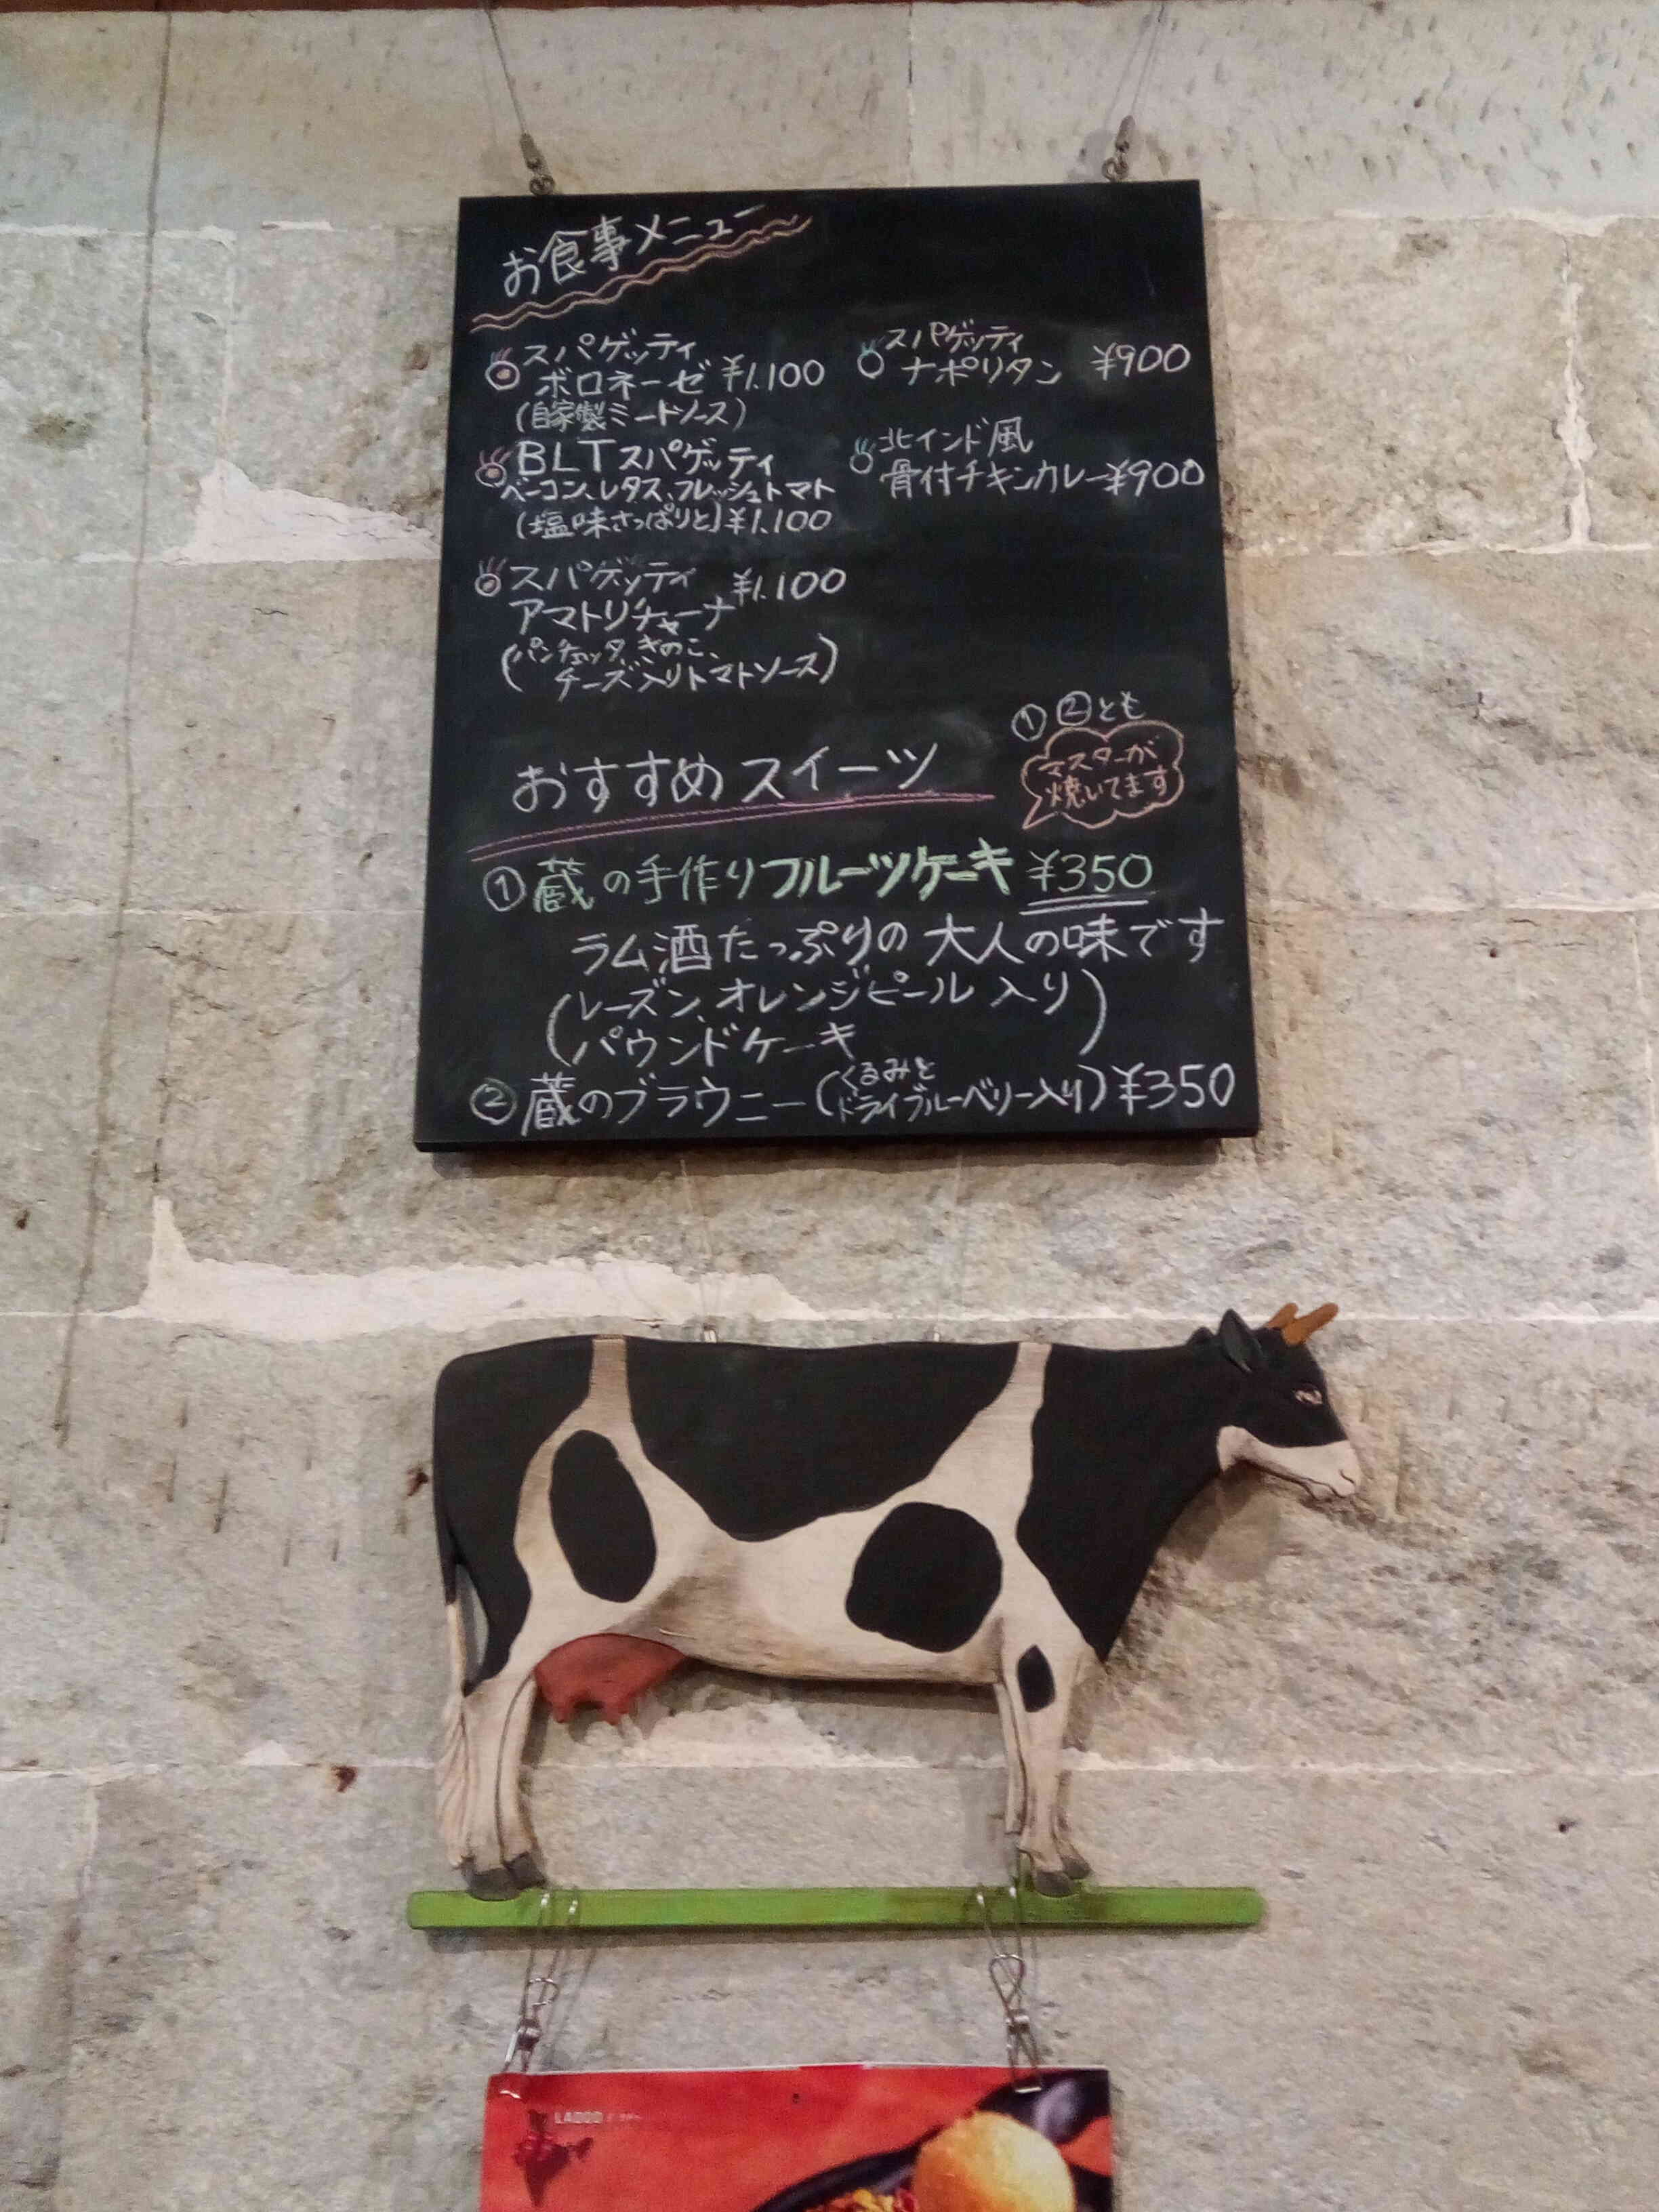 お食事メニュー
スパゲッティ
ボロネーゼ ¥1,100
(自家製ミートソース)
BLTスパゲッティ
ベーコン、レタス、フレッシュトマト
(塩味さっぱりと) ¥1,100
スパゲッティ ¥1,100
アマトリチャーナ
(パンチェッタ、きのこ、
チーズ入りトマトソース)
スパゲッティ
ナポリタン ¥900
北インド風
骨付チキンカレー ¥900
おすすめスイーツ
① ②とも
マスターが
焼いてます
① 蔵の手作りフルーツケーキ ¥350
ラム酒たっぷりの大人の味です
(レーズン、オレンジピール入り
パウンドケーキ)
② 蔵のブラウニー(くるみと
ドライブルーベリー入り) ¥350